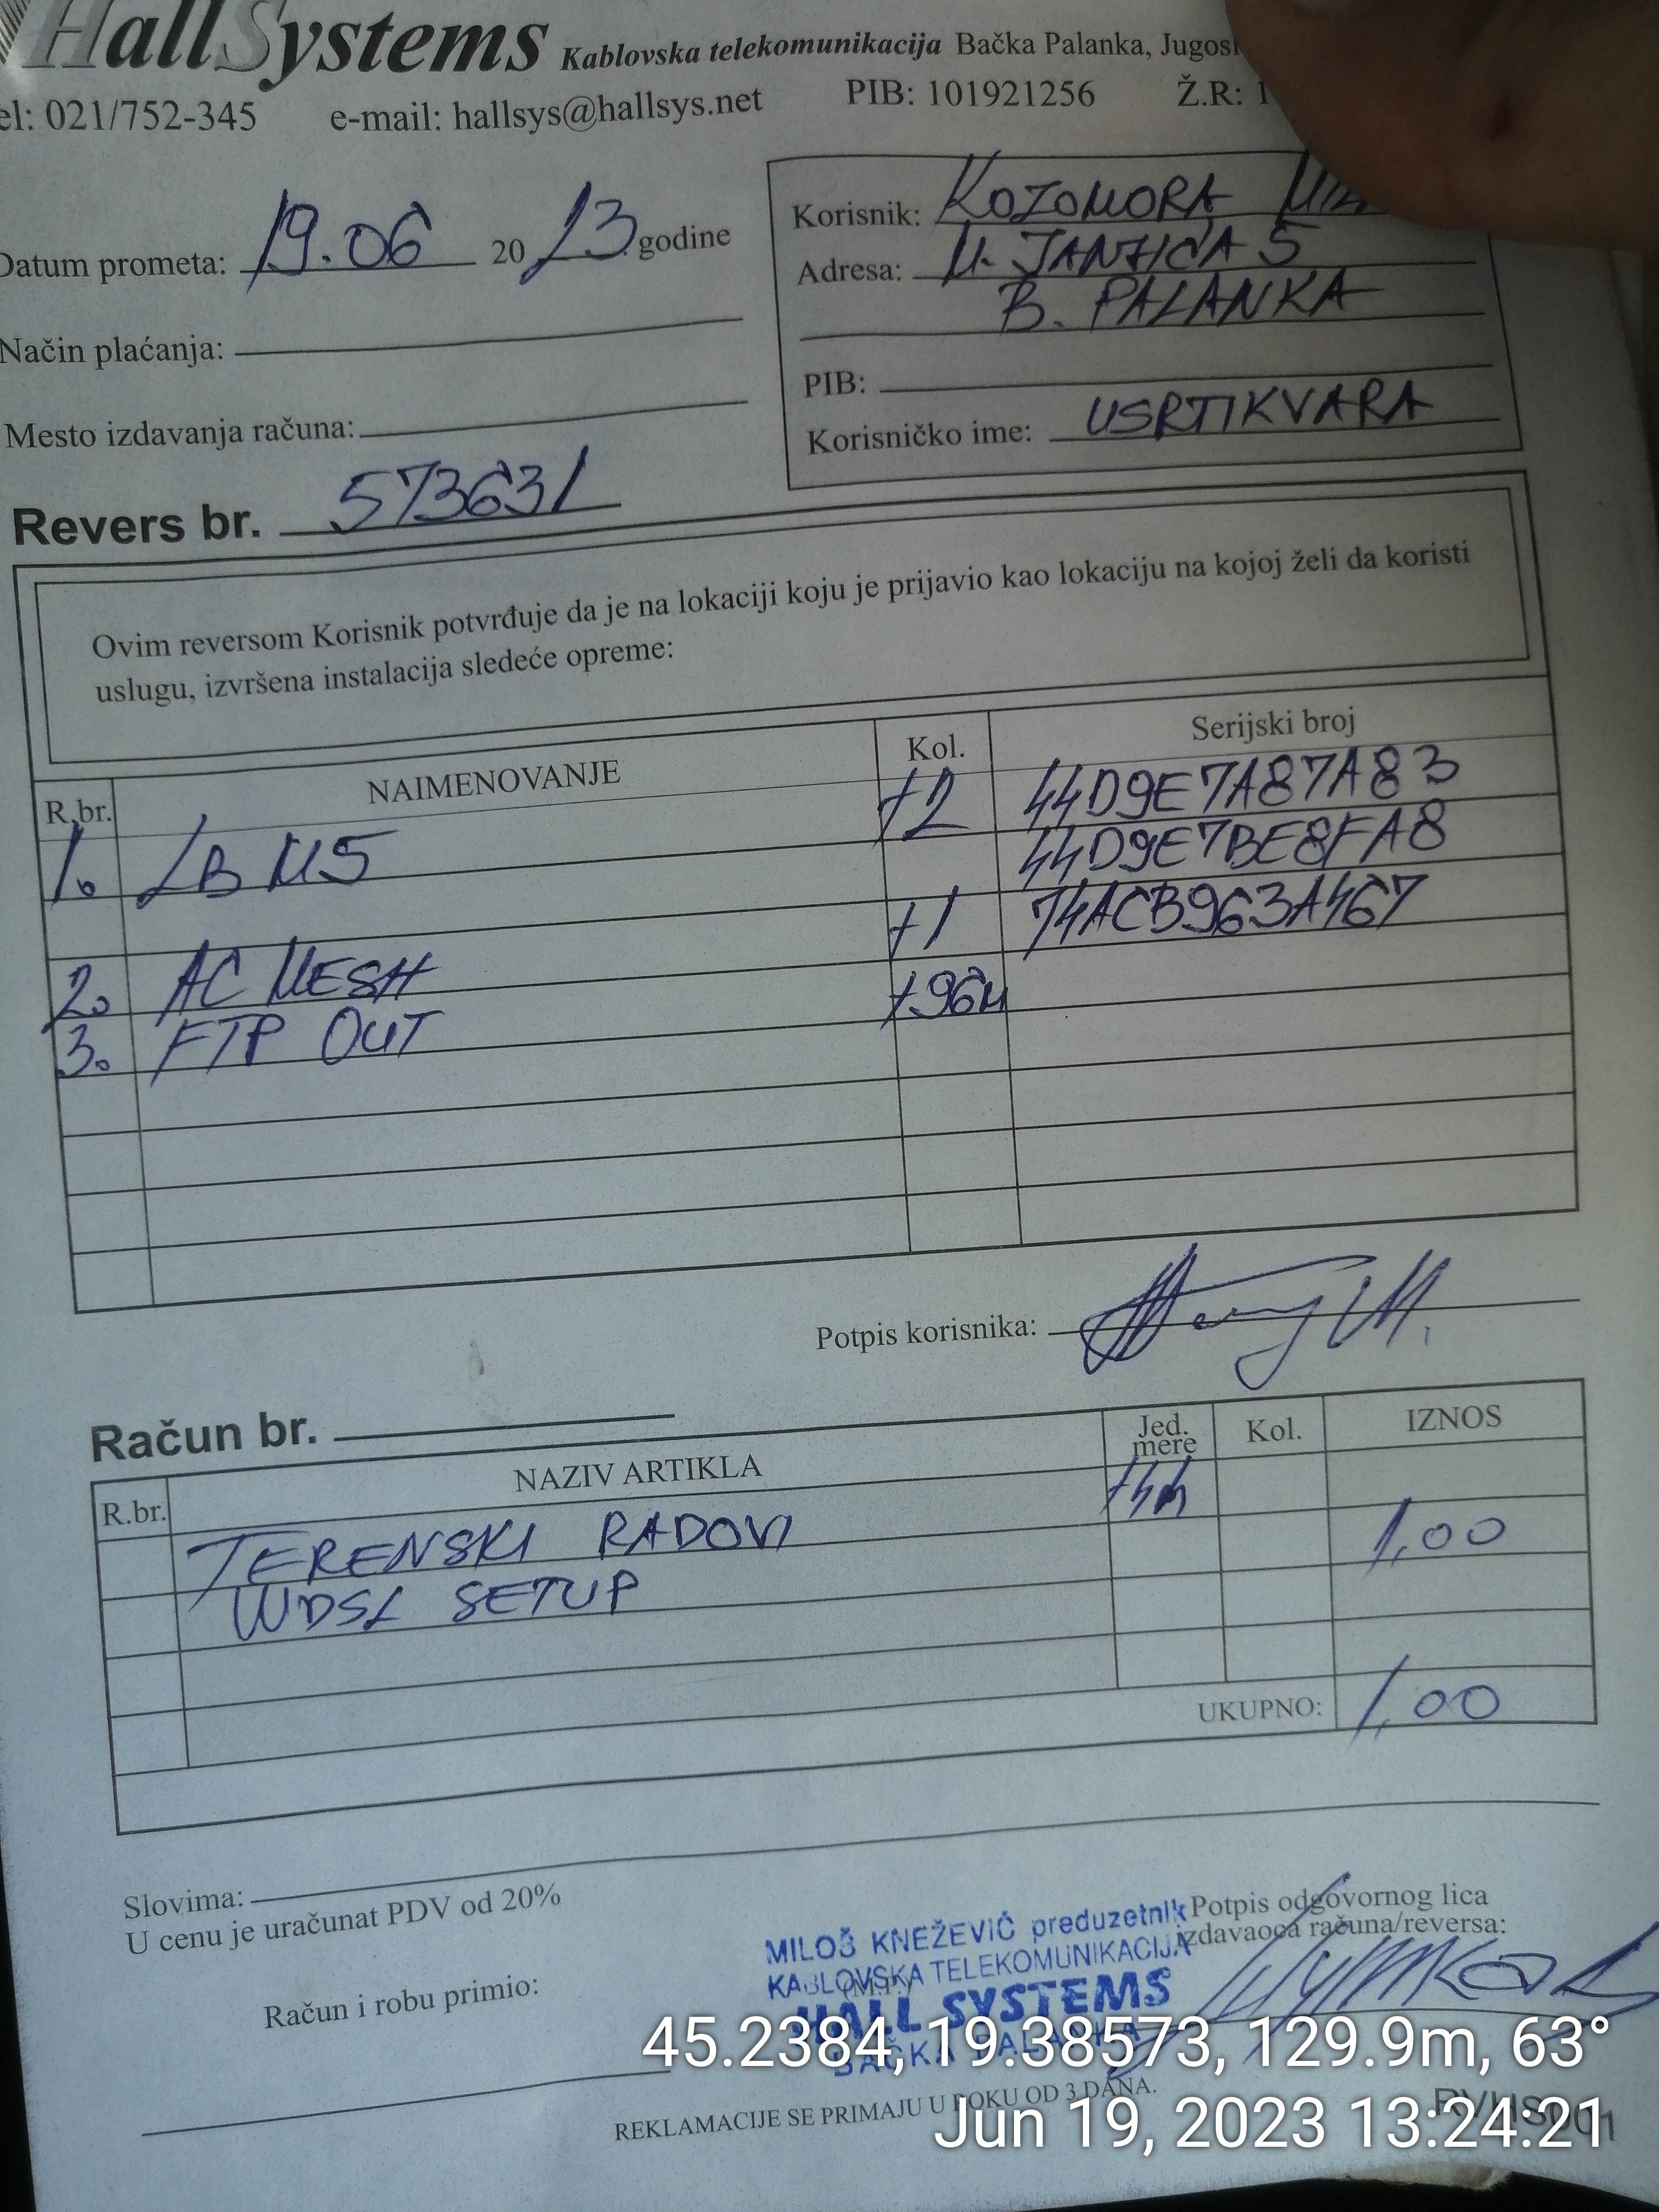 HallSystems Kablovska telekomunikacija Bačka Palanka,
el: 021/752-345 e-mail: hallsys@hallsys.net PIB: 101921256 Ž.R: 1
Datum prometa: 19.06 2023 godine
Način plaćanja:
Mesto izdavanja računa:
Korisnik: KOZOMORA
Adresa: M. JANJIĆA 5
B. PALANKA
PIB:
Korisničko ime: USRTIKVARA
Revers br. 573631
Ovim reversom Korisnik potvrđuje da je na lokaciji koju je prijavio kao lokaciju na kojoj želi da koristi
uslugu, izvršena instalacija sledeće opreme:
R.br. NAIMENOVANJE Kol. Serijski broj
1. LB M5 +2 44D9E7A87A83
44D9E7BE8FA8
2. AC MESH +1 74ACB963A467
3. FTP OUT +96m
Potpis korisnika:
Račun br.
R.br. NAZIV ARTIKLA Jed. mere Kol. IZNOS
TERENSKI RADOVI +4h 1,00
WDSL SETUP
UKUPNO: 1,00
Slovima:
U cenu je uračunat PDV od 20%
Račun i robu primio:
MILOŠ KNEŽEVIĆ preduzetnik
KABLOVSKA TELEKOMUNIKACIJA
(M.P.)
HALL SYSTEMS
BAČKA PALANKA
Potpis odgovornog lica
izdavaoca računa/reversa:
45.2384, 19.38573, 129.9m, 63°
REKLAMACIJE SE PRIMAJU U ROKU OD 3 DANA.
Jun 19, 2023 13:24:21